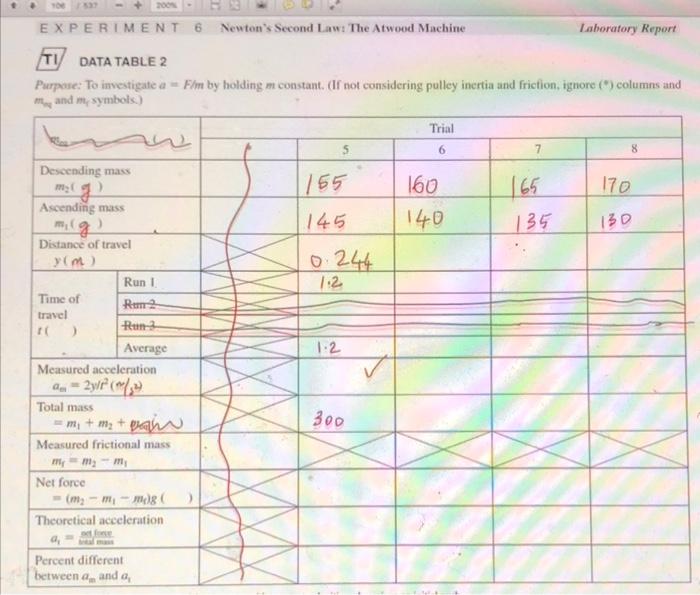 106 / 537 200%
EXPERIMENT 6 Newton's Second Law: The Atwood Machine Laboratory Report
TI DATA TABLE 2
Purpose: To investigate a = F/m by holding m constant. (If not considering pulley inertia and friction, ignore (*) columns and
m_eq and m_f symbols.)
Trial
5 6 7 8
Descending mass
m₂( g ) 155 160 165 170
Ascending mass
m₁( g ) 145 140 135 130
Distance of travel
y( m ) 0.244
Time of
travel
t( )
Run 1 1.2
Run 2
Run 3
Average 1.2
Measured acceleration
a_m = 2y/t² (m/s²) ✓
Total mass
= m₁ + m₂ + 300
Measured frictional mass
m_f = m₂ − m₁
Net force
= (m₂ − m₁ − m_f)g ( )
Theoretical acceleration
a_t = net force / total mass
Percent different
between a_m and a_t